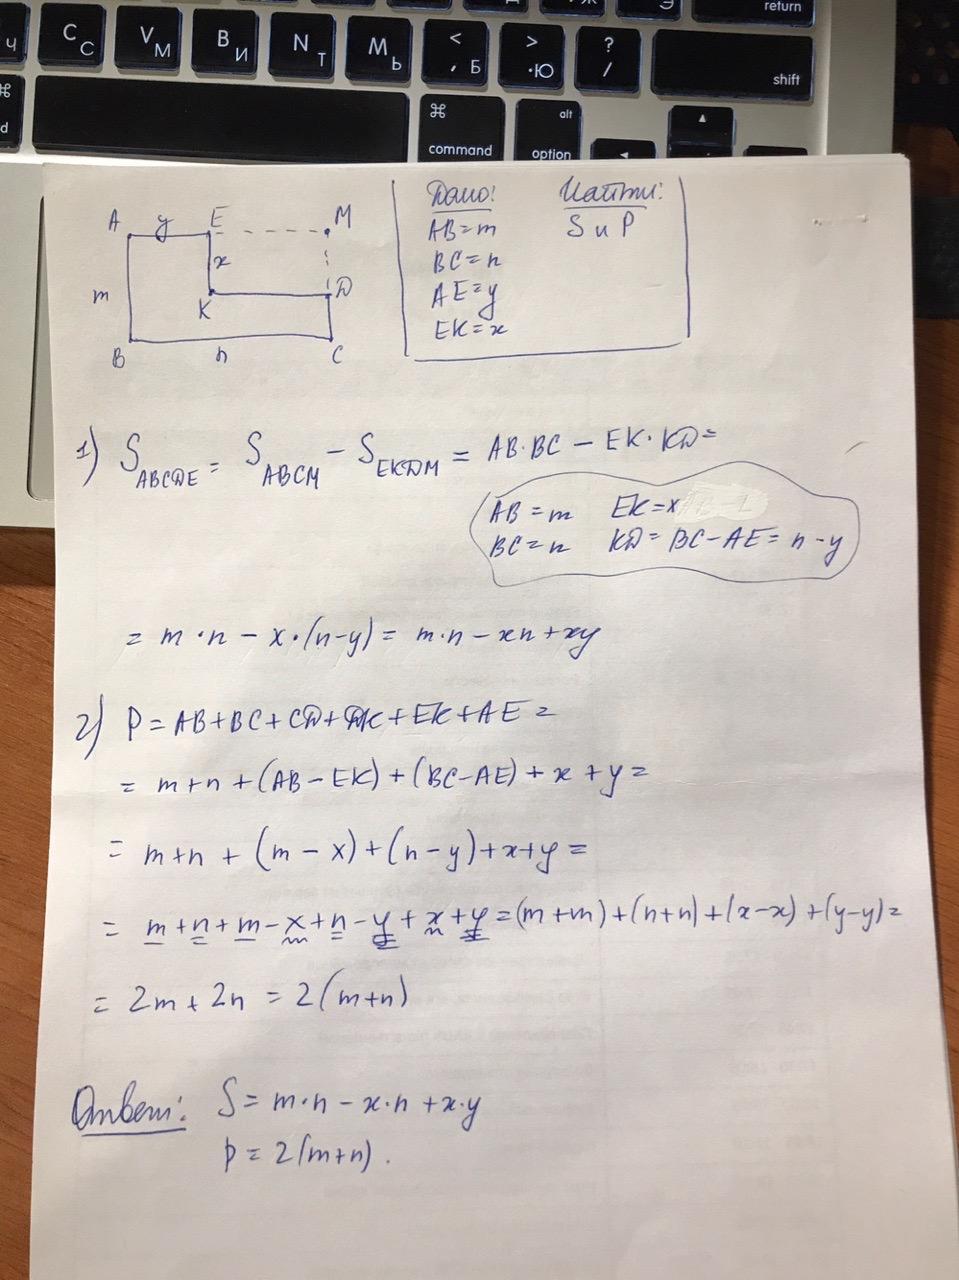 return
Ч C С V М B И N Т M Ь < , Б > . Ю ? / shift
⌘ command alt option
A y E M
x
m K D
B n C
Дано: Найти:
AB = m S и P
BC = n
AE = y
EK = x
1) S ABCDE = S ABCM - S EKDM = AB·BC - EK·KD =
AB = m EK = x
BC = n KD = BC - AE = n - y
= m·n - x·(n-y) = m·n - xn + xy
2) P = AB + BC + CD + DK + EK + AE =
= m + n + (AB - EK) + (BC - AE) + x + y =
= m + n + (m - x) + (n - y) + x + y =
= m + n + m - x + n - y + x + y = (m+m) + (n+n) + (x-x) + (y-y) =
= 2m + 2n = 2(m+n)
Ответ: S = m·n - x·n + x·y
p = 2(m+n).